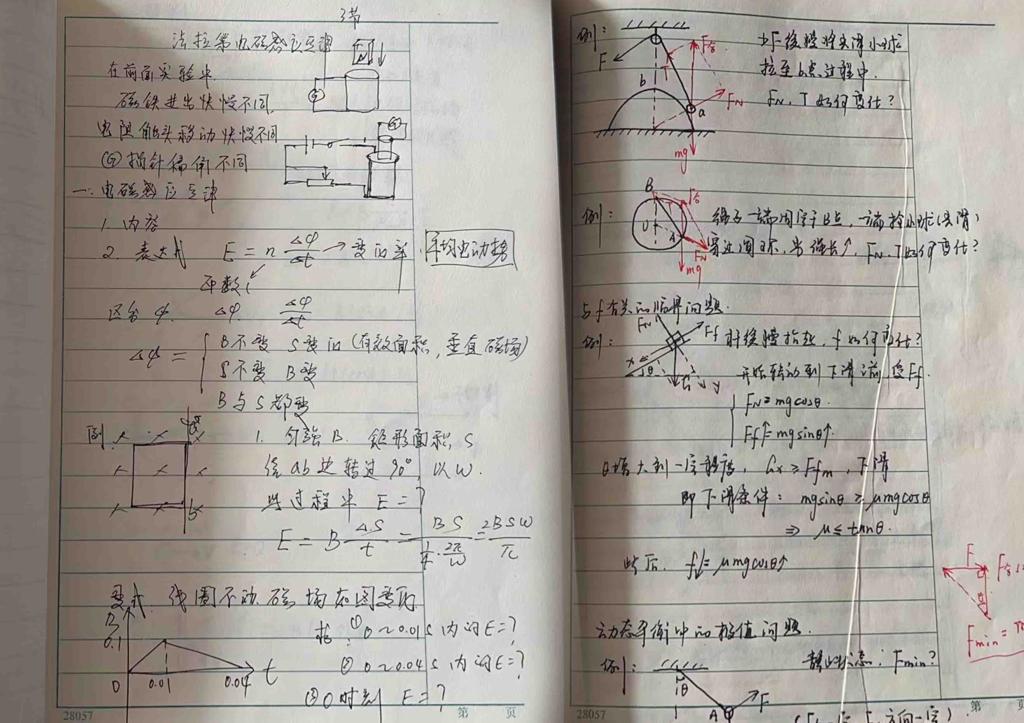 3节
法拉第电磁感应定律
在前面实验中
磁铁进出快慢不同
电阻触头移动快慢不同
G 指针偏角不同
一. 电磁感应定律
1. 内容
2. 表达式 E = n Δφ/Δt → 变化率 平均电动势
匝数
区分 φ Δφ Δφ/Δt
Δφ = B不变 S变化(有效面积, 垂直磁场)
S不变 B变
B与S都变
例: 1. 匀强B. 矩形面积S
a
b
绕ab边转过90° 以ω.
此过程中 E=?
E = B ΔS/t = BS/(1/4·2π/ω) = 2BSω/π
变式. 线圈不动. 磁场如图变化
B
0.1
0 0.01 0.04 t
求: ① 0~0.01s内的E=?
② 0~0.04s内的E=?
③ 0时刻 E=?
28057 第 页
例: 力F缓慢将光滑小球
拉至b点过程中.
FN、T如何变化?
F T F合 b FN a mg
例: 绳子一端固定于B点, 一端拴小球(光滑)
穿过圆环, 当绳长↑, FN、T如何变化?
B F合 O A FN mg
与f有关的临界问题.
例: 缓慢抬起, f如何变化?
FN Ff x θ G y
开始转动到下滑前, 受Ff
FN=mgcosθ
Ff↑=mgsinθ↑
θ增大到一定程度, Gx≥Ffm, 下滑
即下滑条件: mgsinθ≥μmgcosθ
⇒ μ≤tanθ.
此后 f↓=μmgcosθ↑
动态平衡中的极值问题.
例: 静止状态: Fmin?
θ F A
F F合 θ
Fmin=
28057 第 页